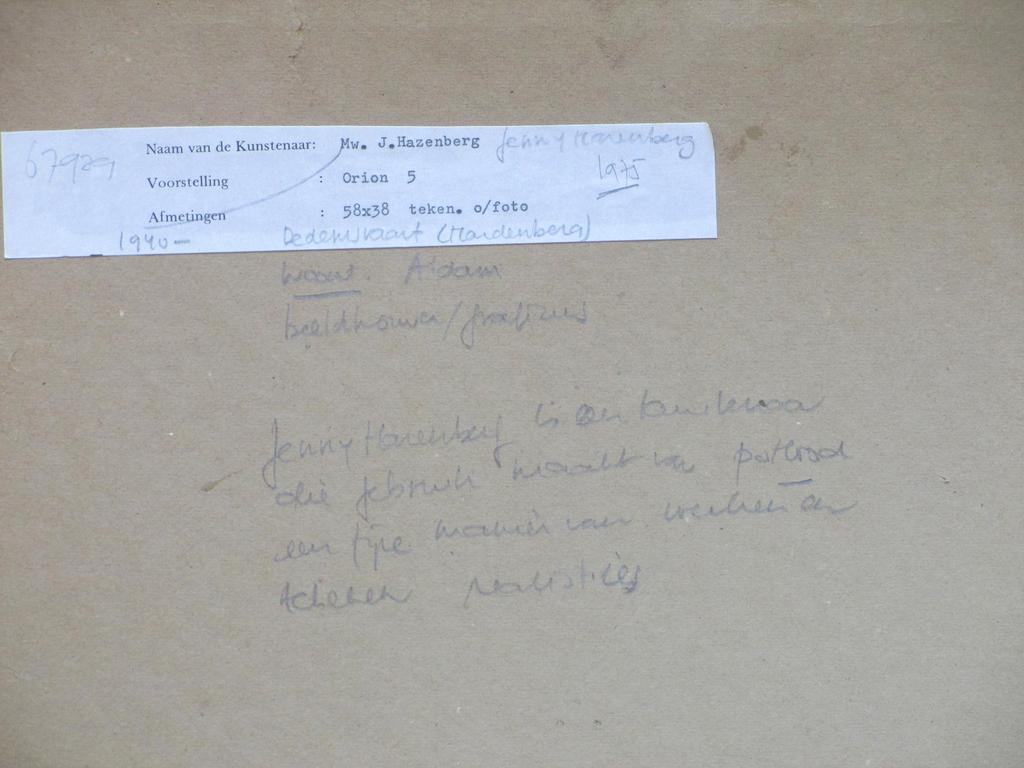 Naam van de Kunstenaar: Mw. J.Hazenberg Jenny Hazenberg
Voorstelling : Orion 5 1975
Afmetingen : 58x38 teken. o/foto
1940- Dedemsvaart (Hardenberg)
woont. A'dam
beeldhouwer/graficus
Jenny Hazenberg is een kunstenaar
die gebruik maakt van potlood
een fijne manier van werken en
tekenen realisties